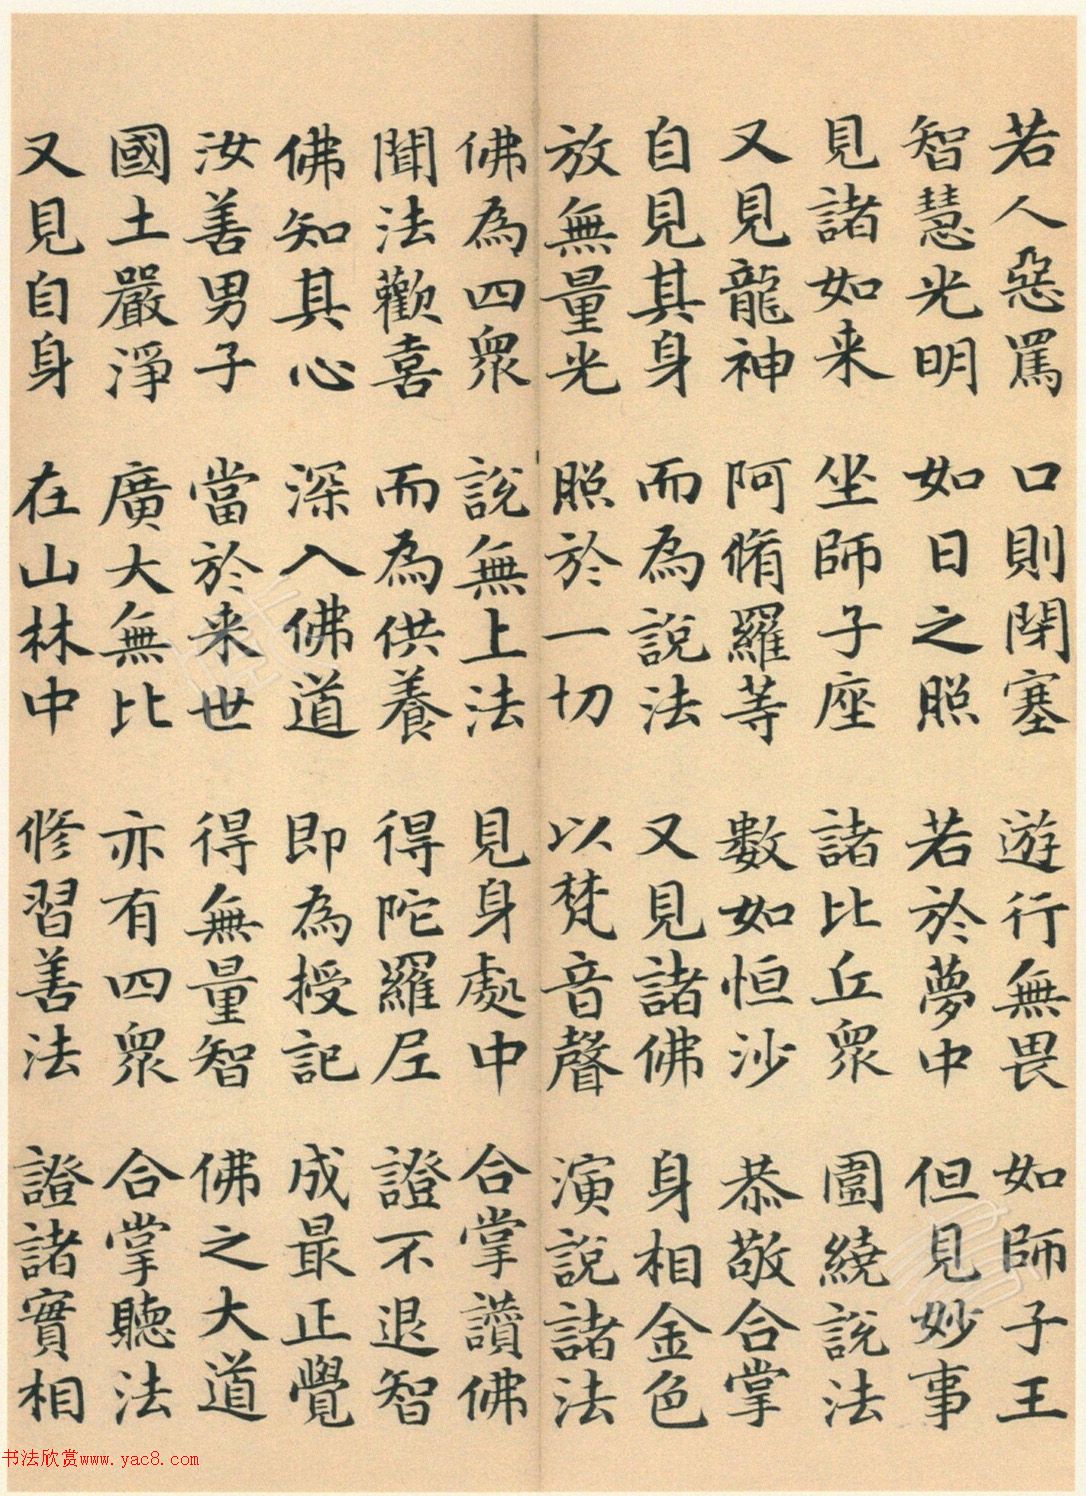 若人惡罵 口則閉塞 遊行無畏 如師子王
智慧光明 如日之照 若於夢中 但見妙事
見諸如来 坐師子座 諸比丘眾 圍繞說法
又見龍神 阿脩羅等 數如恒沙 恭敬合掌
自見其身 而為說法 又見諸佛 身相金色
放無量光 照於一切 以梵音聲 演說諸法
佛為四眾 說無上法 見身處中 合掌讚佛
聞法歡喜 而為供養 得陀羅尼 證不退智
佛知其心 深入佛道 即為授記 成最正覺
汝善男子 當於来世 得無量智 佛之大道
國土嚴淨 廣大無比 亦有四眾 合掌聽法
又見自身 在山林中 修習善法 證諸實相
书法欣赏www.yac8.com